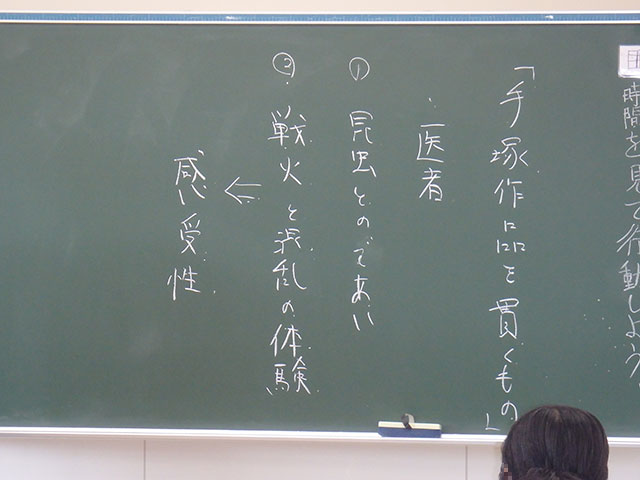 時間を見て行動しよう
「手塚作品を貫くもの」
・医者
① 昆虫とのであい
② 戦火と混乱の体験
←
感受性